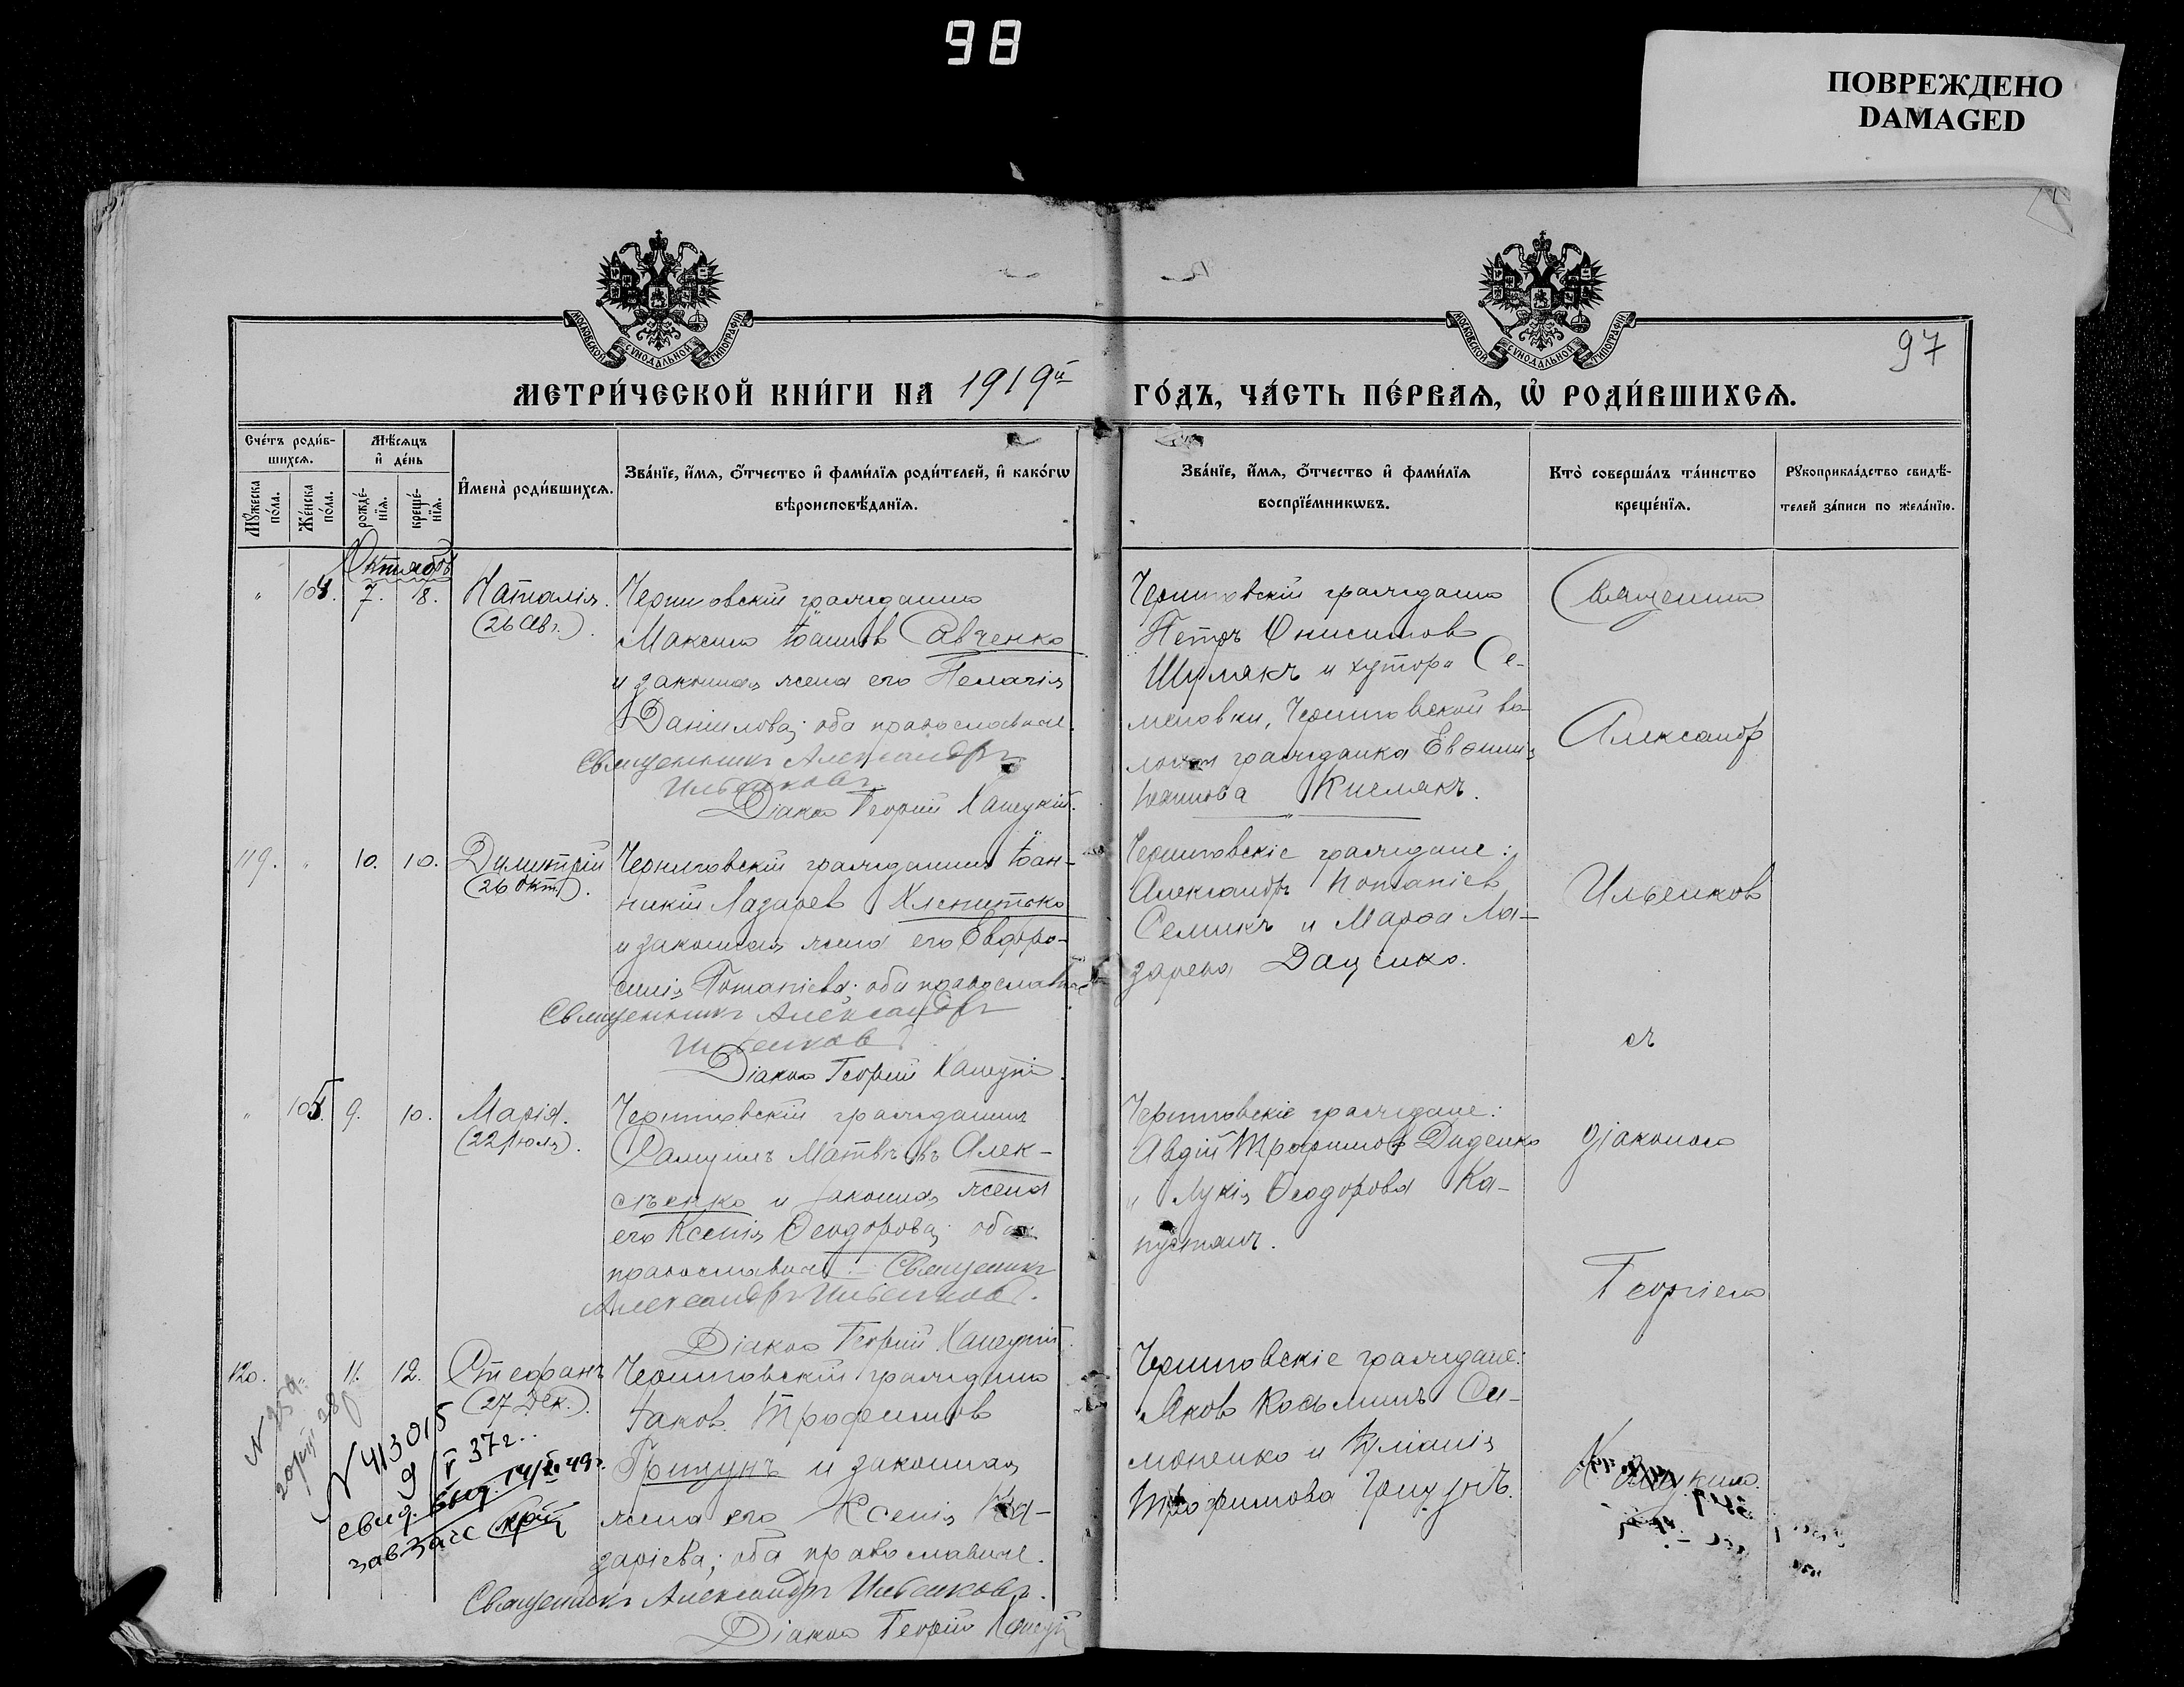 98
ПОВРЕЖДЕНО
DAMAGED
МОСКОВСКОЙ СѴНОДАЛЬНОЙ ТИПОГРАФІИ
МОСКОВСКОЙ СѴНОДАЛЬНОЙ ТИПОГРАФІИ
97
МЕТРИ́ЧЕСКОЙ КНИ́ГИ НА 1919й
ГО́ДЪ, ЧА́СТЬ ПЕ́РВАЯ, Ѡ҆ РОДИ́ВШИХСЯ.
Сче́тъ роди́в-
шихся.
Мѣ́сяцъ
и҆ де́нь
Мꙋ́жеска по́ла.
Же́нска по́ла.
рожде́-
нїя.
креще́-
нїя.
И҆мена̀ роди́вшихся.
Зва́нїе, и҆́мя, ѻ҆́тчество и҆ фами́лїя роди́телей, и҆ како́гѡ
вѣроисповѣ́данїя.
Зва́нїе, и҆́мя, ѻ҆́тчество и҆ фами́лїя
воспрїе́мникѡвъ.
Кто̀ соверша́лъ та́инство
креще́нїя.
Рꙋкоприкла́дство свидѣ́-
телей за́писи по жела́нїю.
Октябрь
" 104. 7. 18. Наталія.
(26 Авг.).
Черниговскій гражданинъ
Максимъ Іоанновъ Савченко
и законная жена его Пелагія
Даніилова; оба православные.
Священникъ Александръ
Ильенковъ
Діаконъ Георгій
Черниговскій гражданинъ
Петръ Онисимовъ
Шумякъ и хутора Се-
меновки, Черниговской во-
лости гражданка Евѳимія
Іоаннова
Священникъ
Александръ
119. " 10. 10. Димитрій
(26 Окт.).
Черниговскій гражданинъ Іоан-
никій Лазарев
и законная жена его Евфро-
синія Потапіева; оба православные
Священникъ Александръ
Ильенковъ
Діаконъ Георгій
Черниговскіе граждане:
Александръ Потапіевъ
Семикъ и Марѳа Ла-
зарева Даценко.
Ильенков
съ
" 105. 9. 10. Марія.
(22 Іюля).
Черниговскій гражданинъ
Самуилъ Матвѣевъ Алек-
сѣенко и законная жена
его Ксенія Ѳеодорова; оба
православные. Священникъ
Александръ Ильенковъ.
Діаконъ Георгій
Черниговскіе граждане:
Авдій Трофимовъ Диденко
и Лукія Ѳеодорова Ка-
пустянъ.
діакономъ
Георгіемъ
120. " 11. 12. Стефанъ
(27 Дек.).
Черниговскій гражданинъ
Іаковъ Трофимовъ
Грицунъ и законная
жена его Ксенія На-
заріева; оба православные.
Священникъ Александръ Ильенковъ.
Діаконъ Георгій
Черниговскіе граждане:
Яковъ Косьминъ Си-
моненко и Іуліанія
Трофимова Грицунъ.
N 413015
9/V 37г.
свид. выд. 14/X 49г.
зав Загс